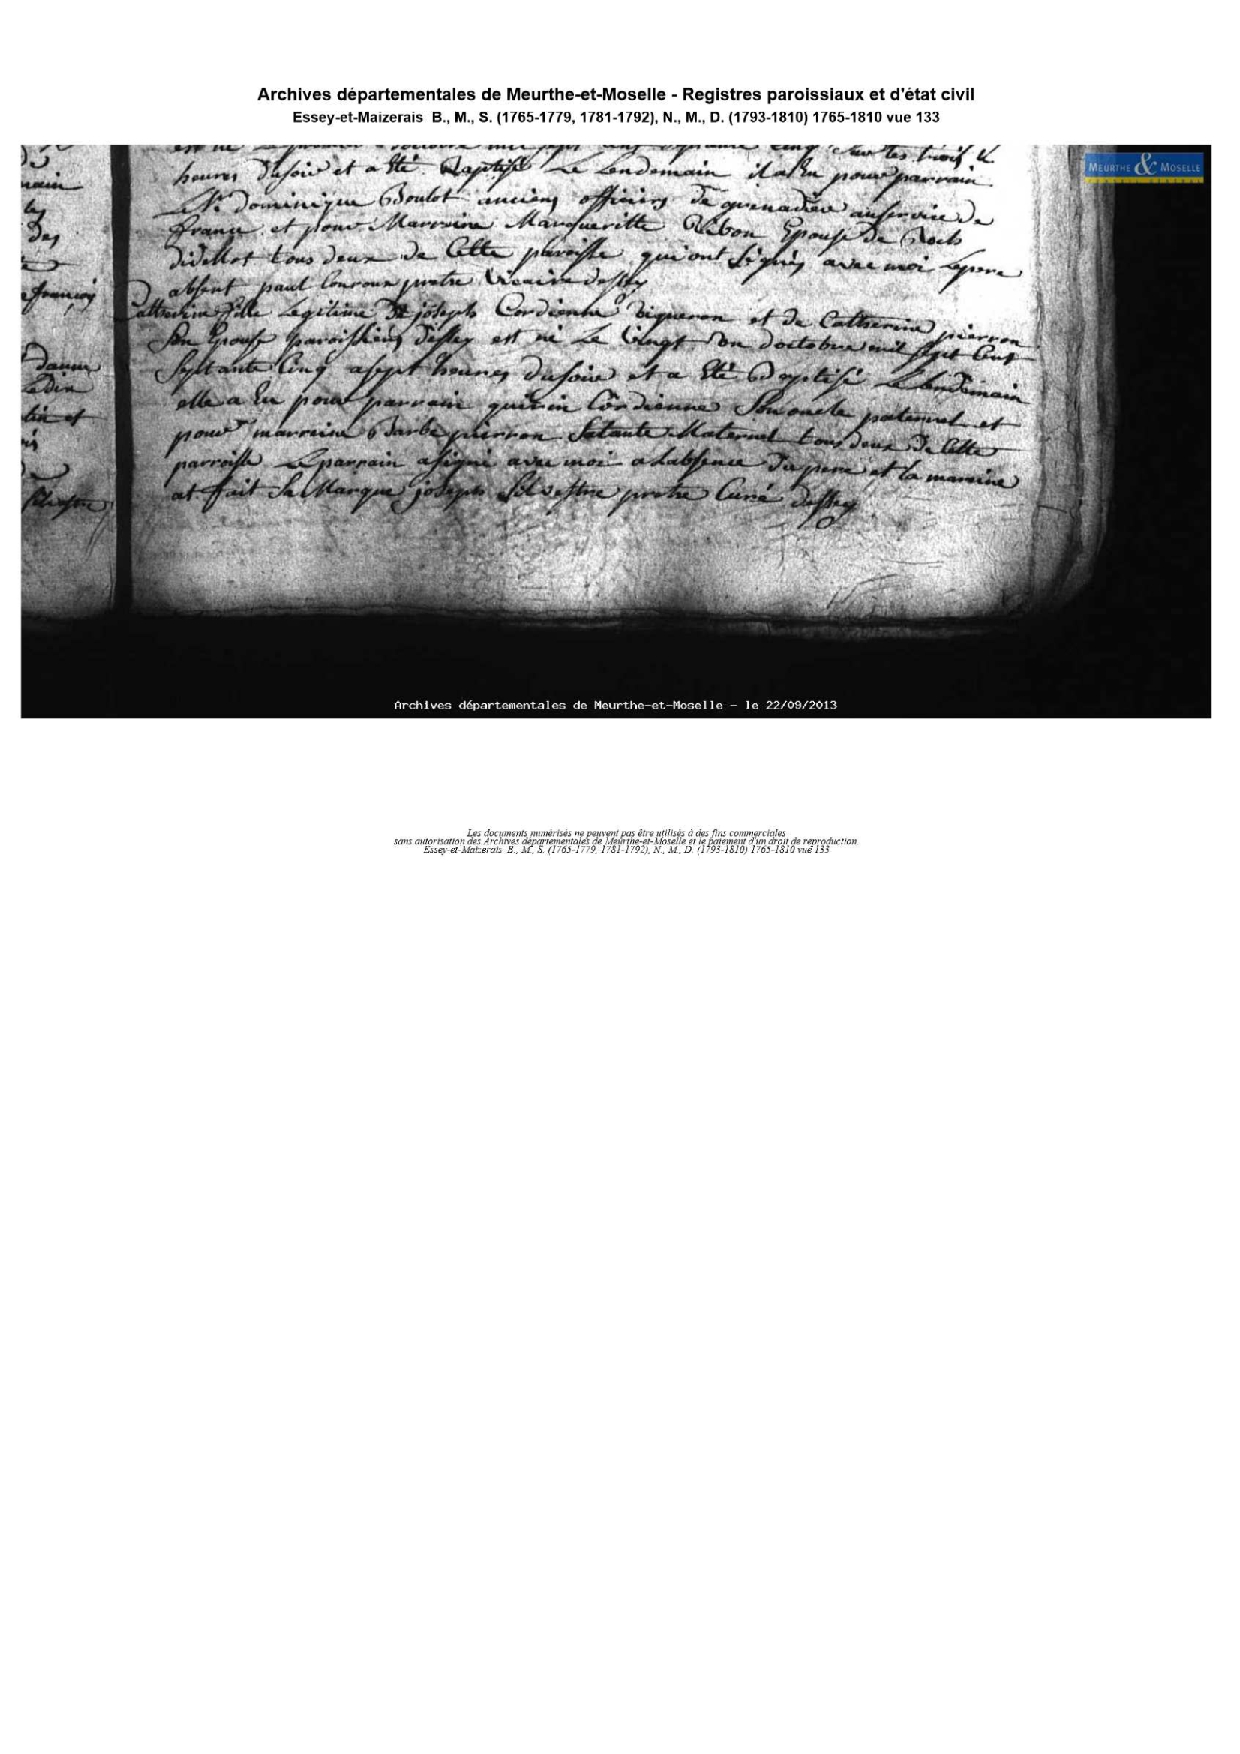 Archives départementales de Meurthe-et-Moselle - Registres paroissiaux et d'état civil
Essey-et-Maizerais B., M., S. (1765-1779, 1781-1792), N., M., D. (1793-1810) 1765-1810 vue 133
MEURTHE & MOSELLE
heures du soir et a été Baptisé Le Lendemain il a Eu pour parrain
Le Sr Dominique Boulot anciens officiers de grenadier au service de
france et pour Marreine Margueritte Epouse de Roch
tous deux de Cette paroisse qui ont Signés avec moi Le pere
absent paul pretre Vicaire dessey
Catherine fille Legitime de joseph Cordienne vigneron et de Catherine pierron
Son Epouse paroissiens d'essey est né Le Vingt un d'octobre mil Sept Cent
Septante Cinq a sept heures du soir et a été Baptisé Le Lendemain
elle a Eu pour parrain quirin Cordienne Son oncle paternel et
pour marreine Barbe pierron Sa tante Maternel tous deux De Cette
parroisse Le parrain a signé avec moi a Labsence du pere et la mareine
at fait Sa Marque joseph Silvestre pretre Curé dessey
Archives départementales de Meurthe-et-Moselle - le 22/09/2013
Les documents numérisés ne peuvent pas être utilisés à des fins commerciales
sans autorisation des Archives départementales de Meurthe-et-Moselle et le paiement d'un droit de reproduction
Essey-et-Maizerais B., M., S. (1765-1779, 1781-1792), N., M., D. (1793-1810) 1765-1810 vue 133